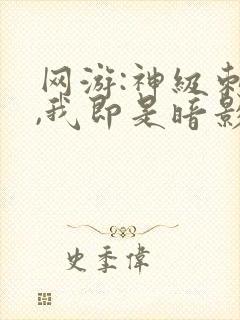 网游:神级刺
,我即是暗影
史季偉